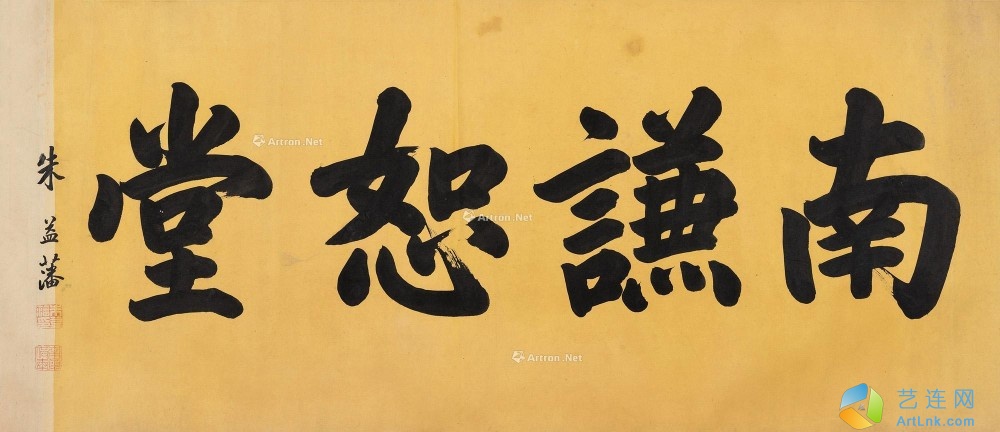 南謙恕堂
朱益藩
Artron.Net
Artron.Net
Artron.Net
艺连网
ArtLnk.com